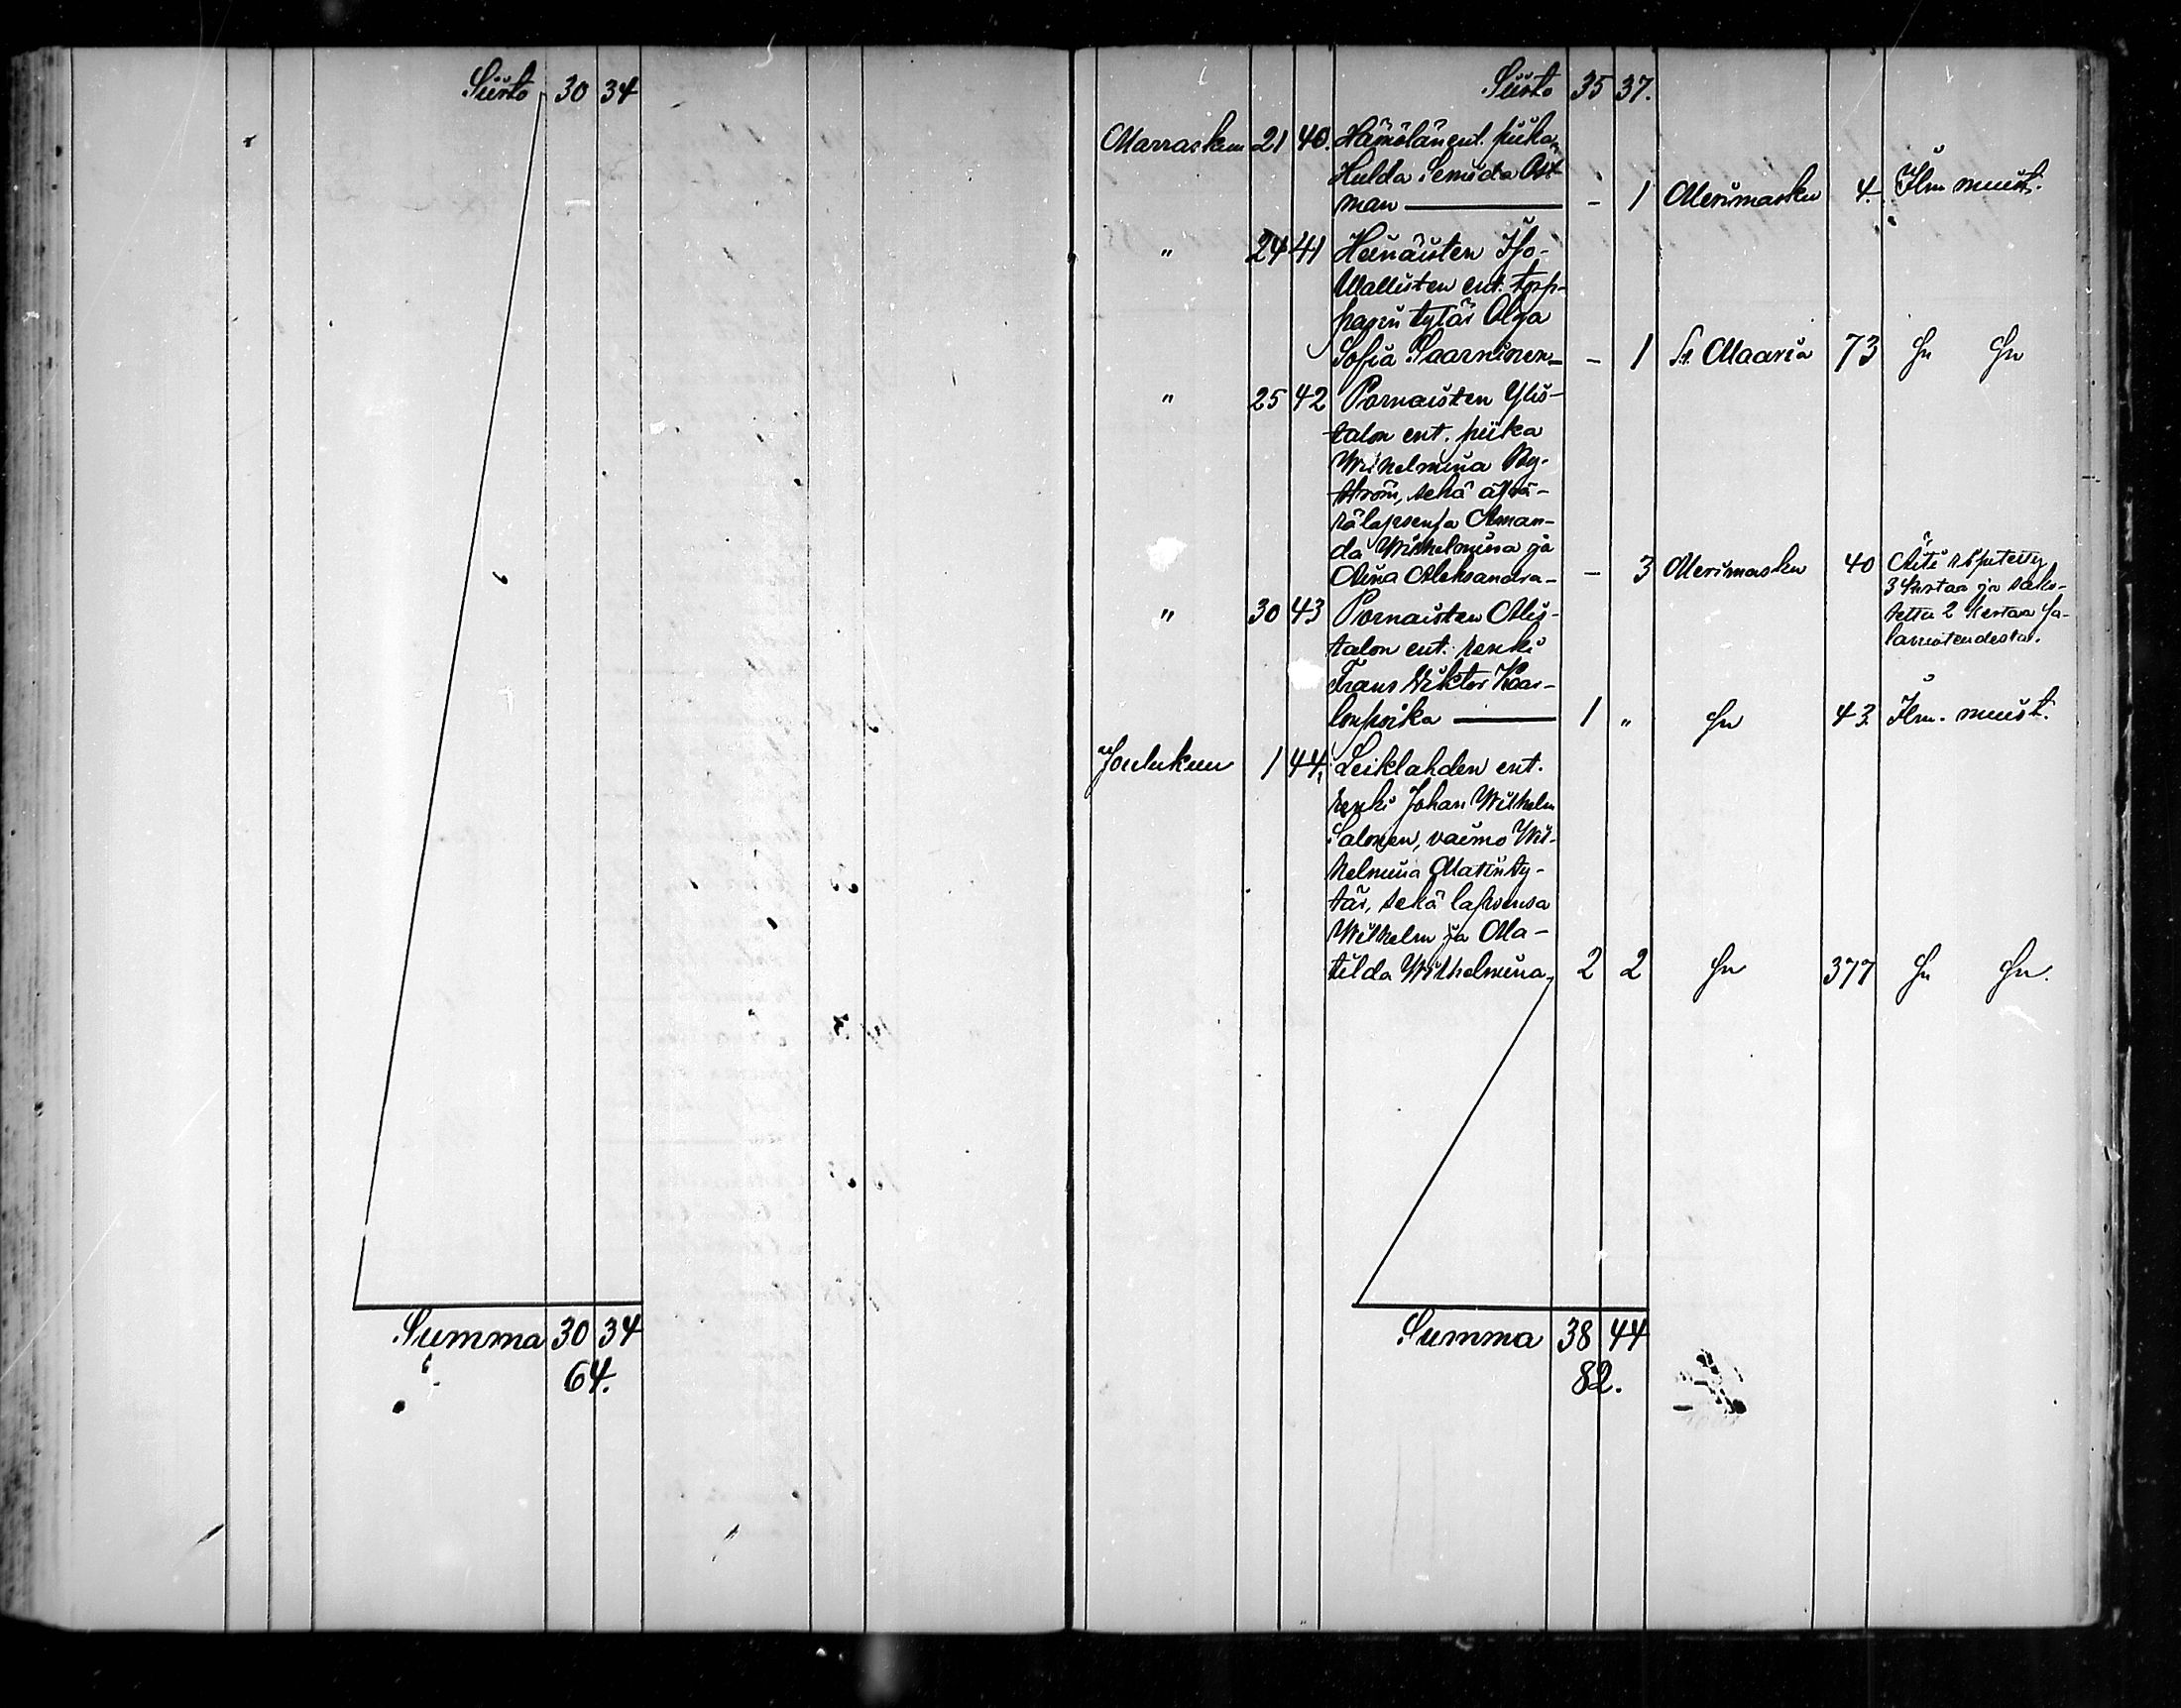 Siirto 30 34
Summa 30 34
64.
Siirto 35 37.
Marraskuu 21 40. Hämölän ent. piika
Hulda Semida Öst-
man — - 1 Merimasku 4. Ilm. muist.
" 24 41 Heinäisten Iso-
Wallisten ent. torp-
parin tytär Olga
Sofia Saarninen - - 1 St. Maaria 73 Sn Sn
" 25 42 Pornaisten Ylis-
talon ent. piika
Wilhelmina By-
ström, sekä äpä-
rälapsensa Aman-
da Wilhelmina ja
Aina Aleksandra - - 3 Merimasku 40 Äiti ripitetty
3 kertaa ja sako-
tettu 2 kertaa sa-
" 30 43 Pornaisten Alis-
talon ent. renki
Frans Viktor Kaar-
lonpoika — 1 " Sn 43 Ilm. muist.
Joulukuu 1 44. Leiklahden ent.
renki Johan Wilhelm
Salonen, vaimo Wil-
helmina Matinty-
tär, sekä lapsensa
Wilhelm ja Ma-
tilda Wilhelmina 2 2 Sn 377 Sn Sn.
Summa 38 44
82.